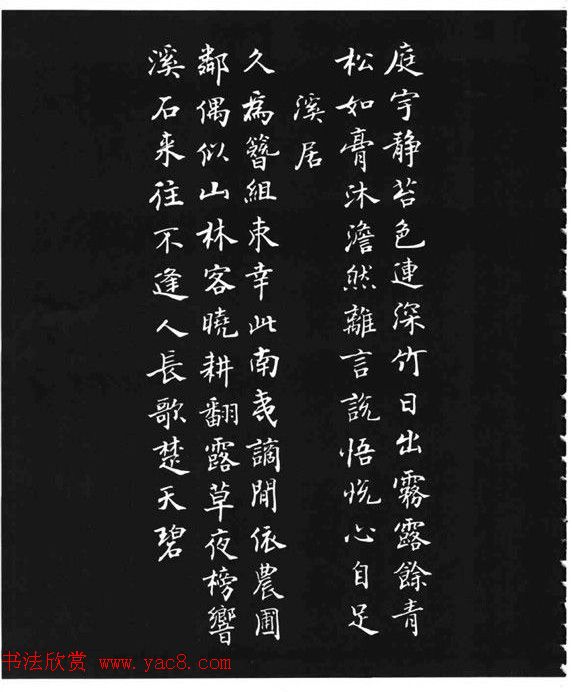 庭宇静苔色連深竹日出霧露餘青
松如膏沐澹然離言説悟悦心自足
溪居
久為簪組束幸此南夷謫閒依農圃
鄰偶似山林客曉耕翻露草夜榜響
溪石来往不逢人長歌楚天碧
书法欣赏 www.yac8.com